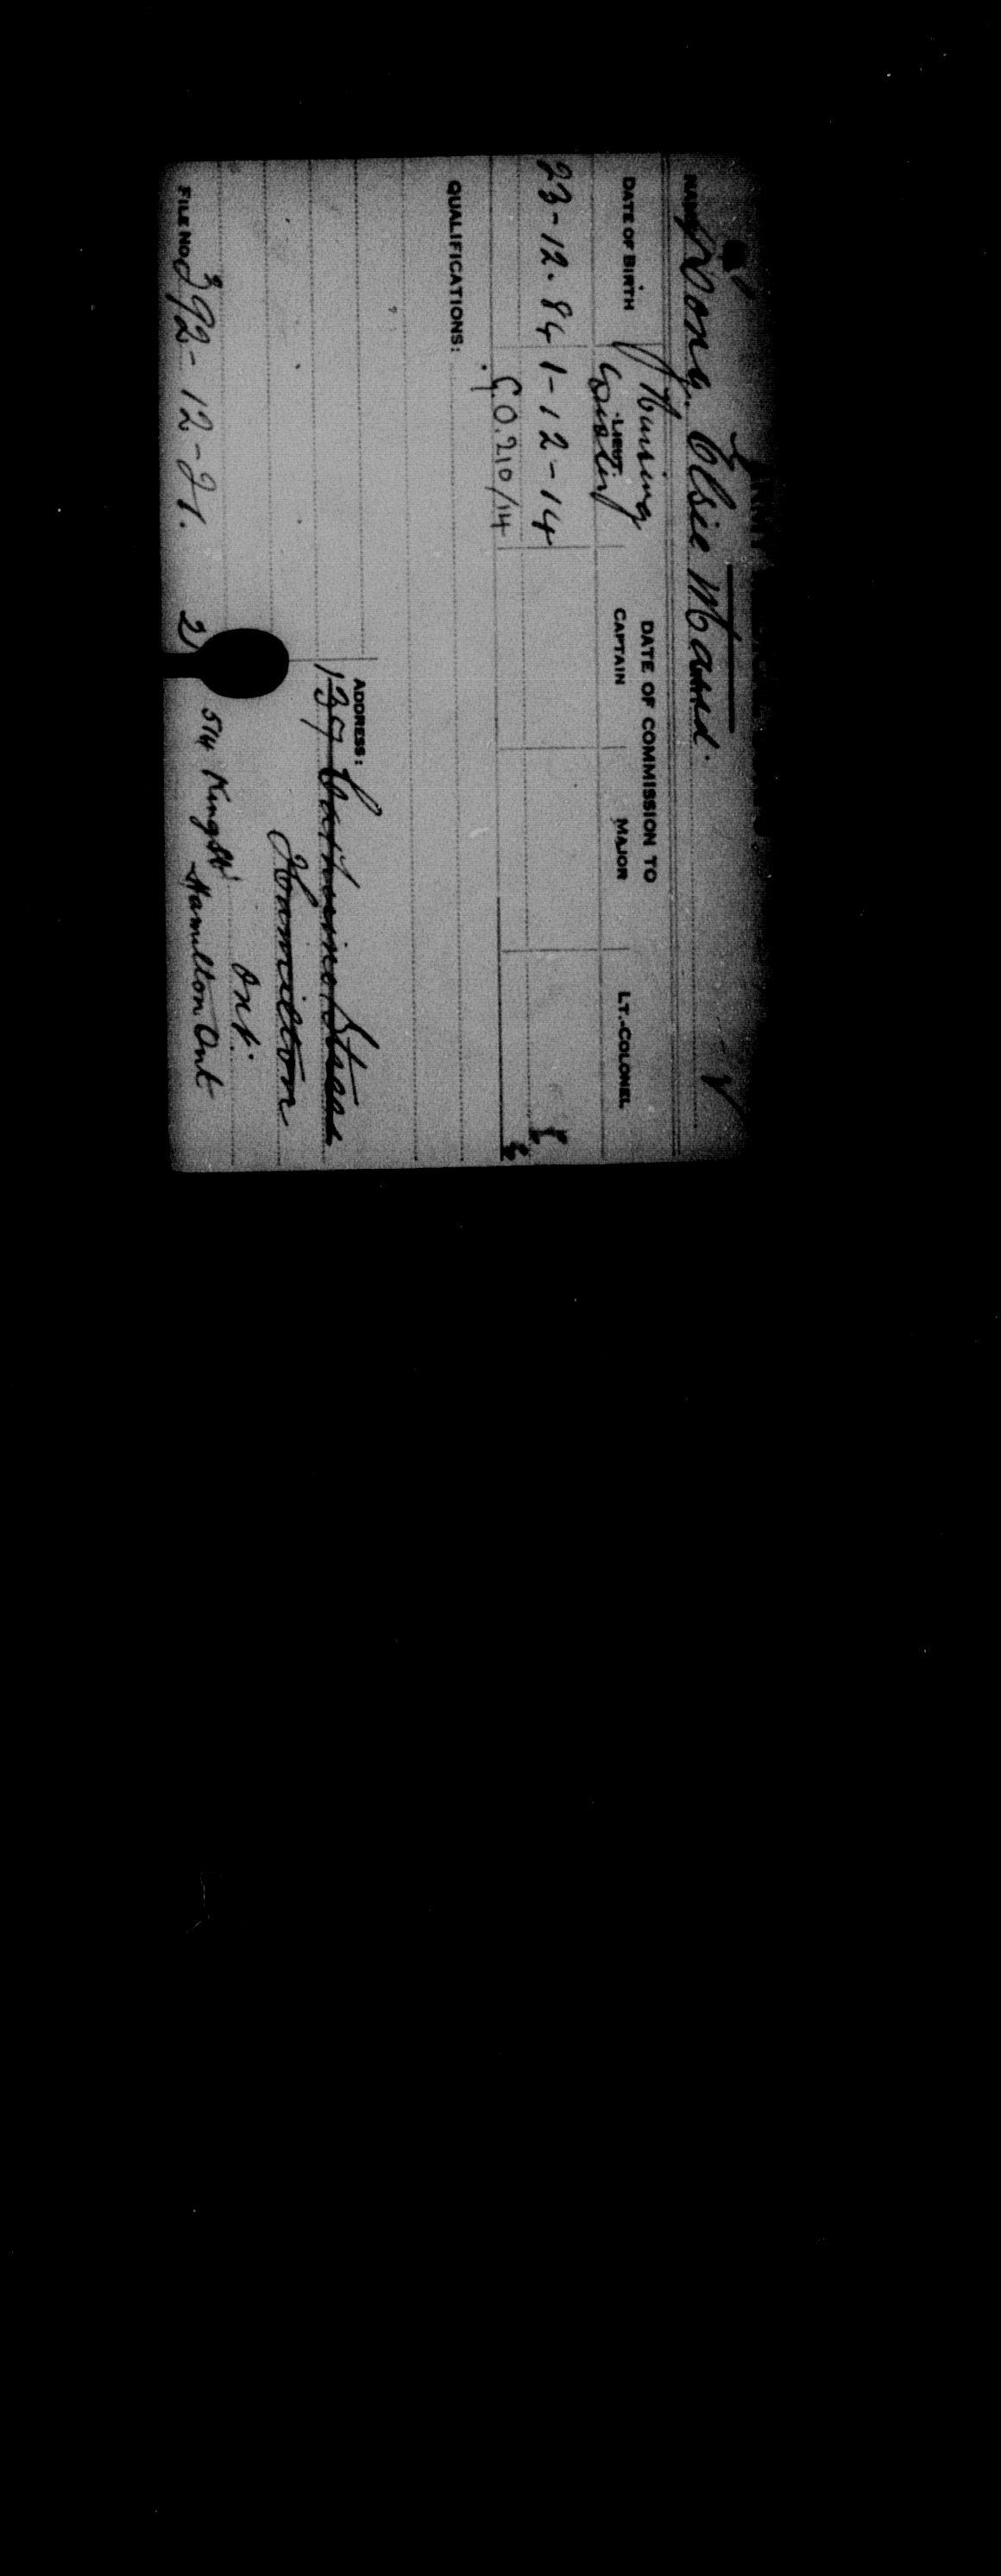 NAME Elsie Maud.
DATE OF BIRTH
DATE OF COMMISSION TO
Nursing
LIEUT.
Sister
CAPTAIN
MAJOR
LT.-COLONEL
23-12-84
1-12-14
G.O. 210/14
QUALIFICATIONS:
ADDRESS:
139 Catharine Street
Hamilton
Ont.
514 King St
Hamilton Ont
FILE NO. 392-12-21. 2